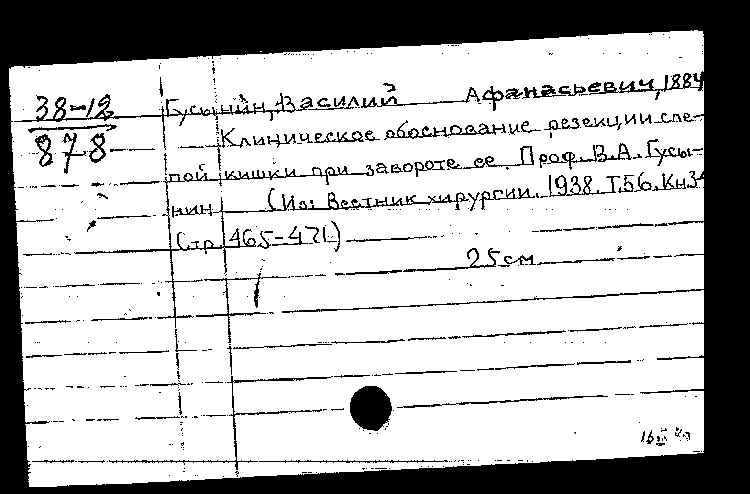 38-12
878
Гусынин, Василий Афанасьевич, 1884
Клиническое обоснование резекции сле-
пой кишки при завороте ее. Проф. В.А. Гусы-
нин (Из: Вестник хирургии. 1938. Т.56. Кн.3
Стр. 465-471.)
25 см